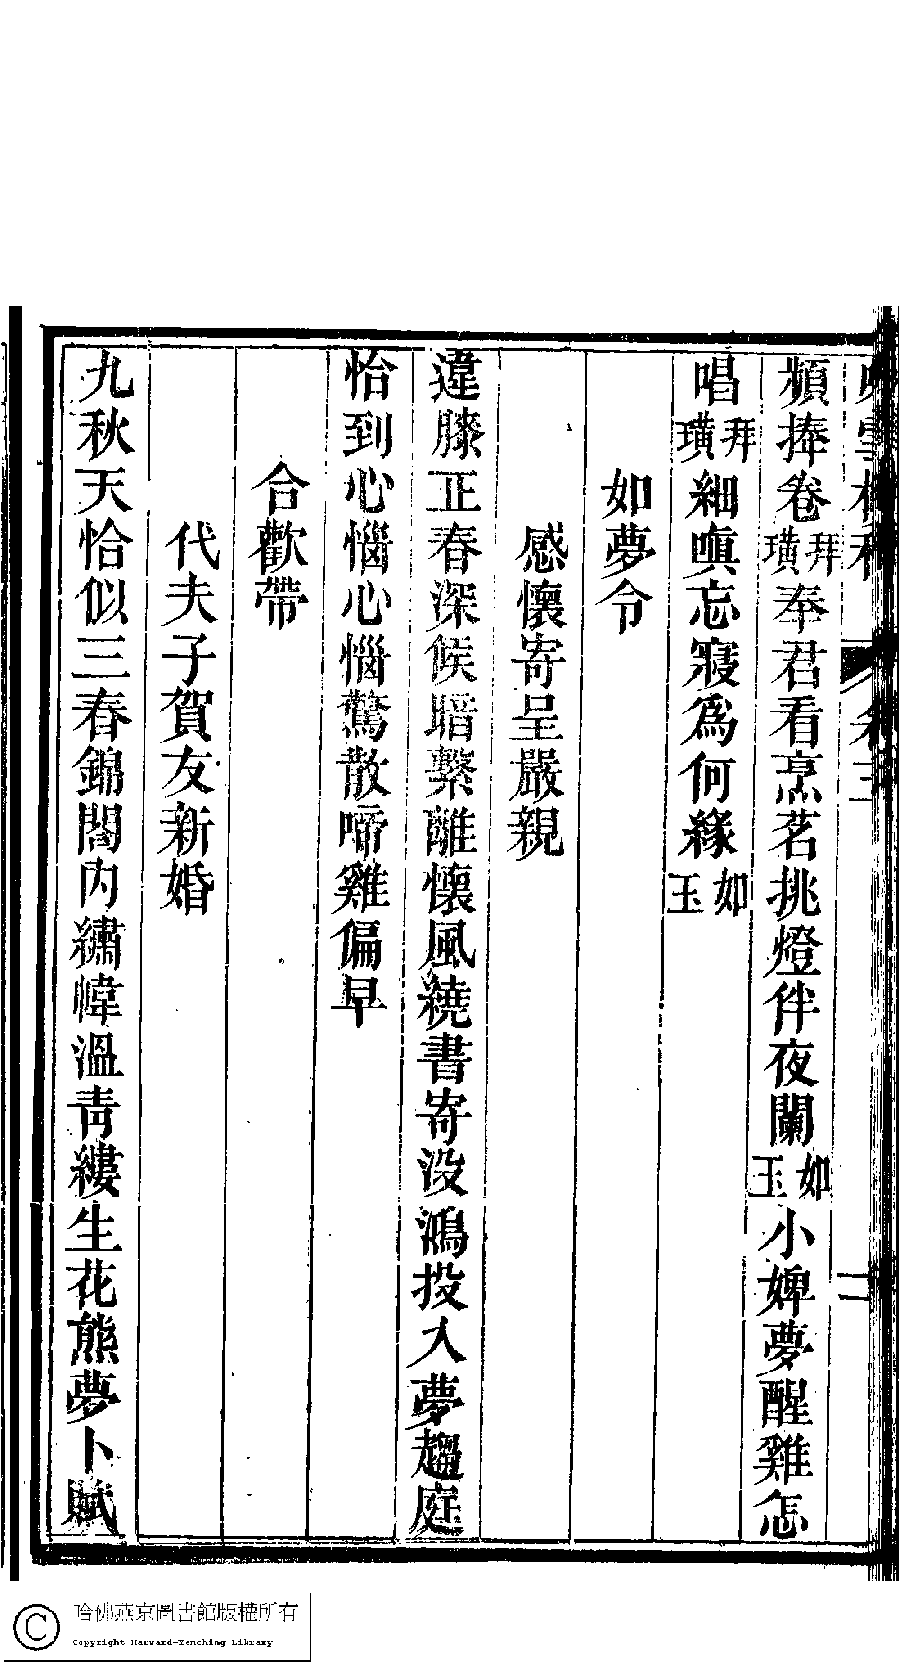 卷三
二
頻捧卷拜璜奉君看烹茗挑燈伴夜闌如玉小婢夢醒雞怎
唱拜璜細嗔忘寢爲何緣如玉
如夢令
感懷寄呈嚴親
違膝正春深候暗繫離懷風繞書寄沒鴻投入夢趨庭
恰到心惱心惱驚散啼雞偏早
合歡帶
代夫子賀友新婚
九秋天恰似三春錦閣內繡幃溫靑縷生花熊夢卜賦
哈佛燕京圖書館版權所有
Copyright Harvard-Yenching Library